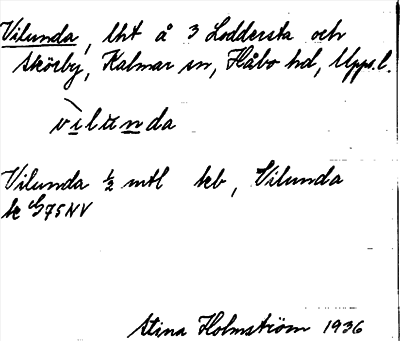 Vilunda, lht å 3 Loddersta och
Skörby, Kalmar sn, Håbo hd, Upps. l.
vilunda
Vilunda ½ mtl skb, Vilunda
sk G75NV
Stina Holmström 1936